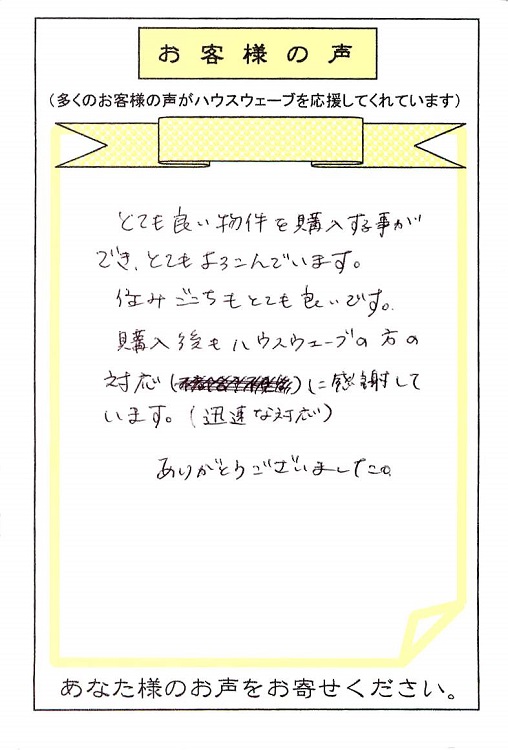 お客様の声
（多くのお客様の声がハウスウェーブを応援してくれています）
とても良い物件を購入する事が
でき、とてもよろこんでいます。
住みごこちもとても良いです。
購入後もハウスウェーブの方の
対応（）に感謝して
います。（迅速な対応）
ありがとうございました。
あなた様のお声をお寄せください。